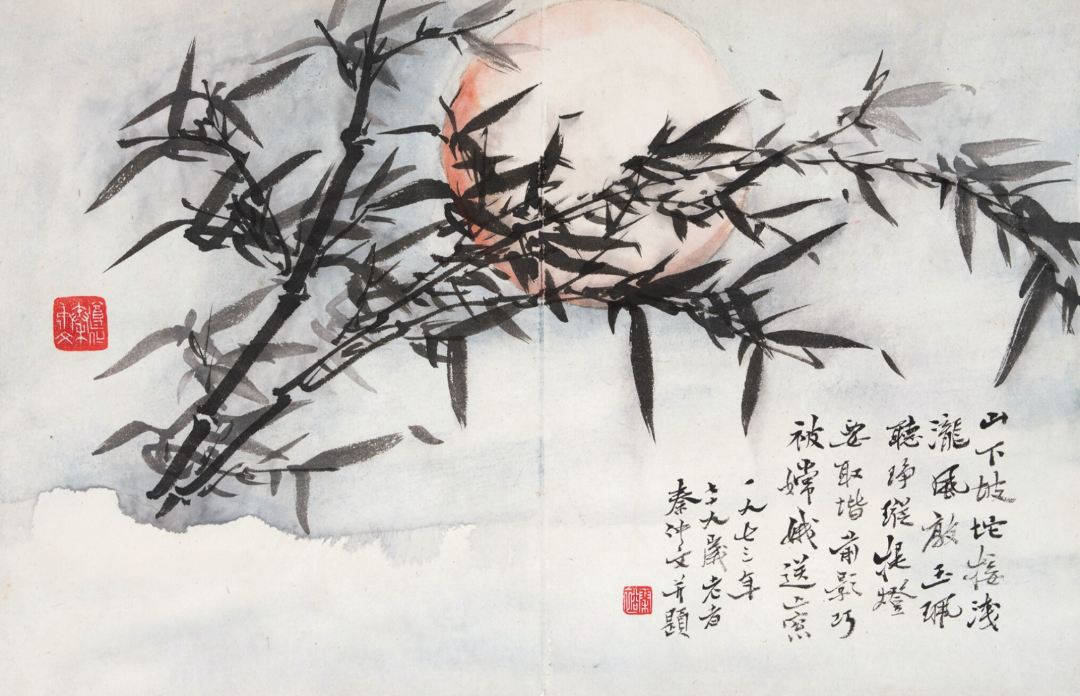 山下坡坨接淺
瀧風敲玉珮
聽琤瑽提燈
要取堦前影巧
被嫦娥送上窗
一九七三年
七十九歲老者
秦仲文并題